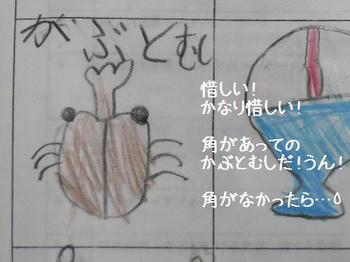 がぶとむし
惜しい!
かなり惜しい!
角があっての
かぶとむしだ!うん!
角がなかったら…